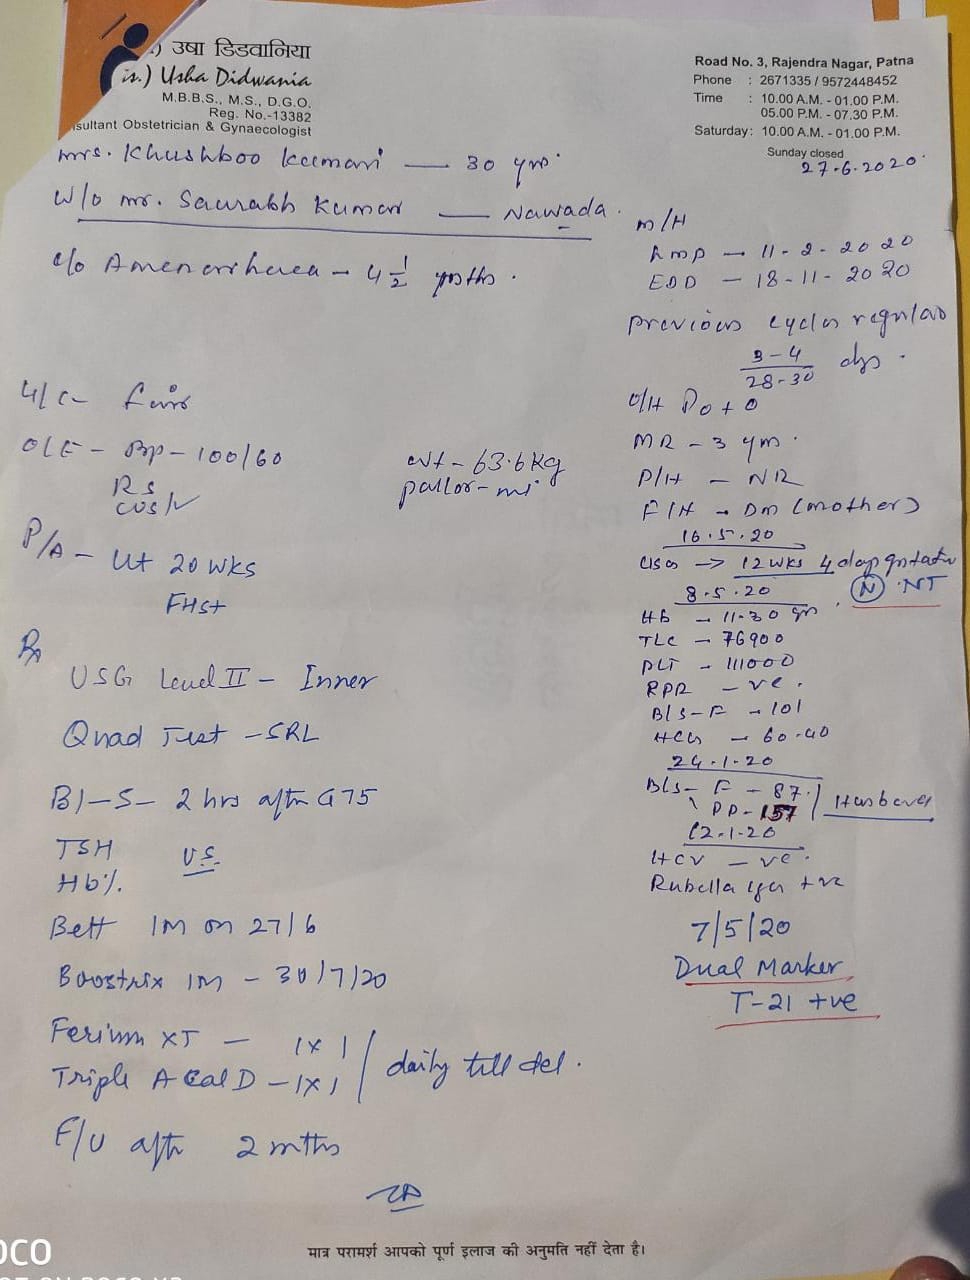 ) उषा डिडवानिया
is.) Usha Didwania
M.B.B.S., M.S., D.G.O.
Reg. No.-13382
nsultant Obstetrician & Gynaecologist
Road No. 3, Rajendra Nagar, Patna
Phone : 2671335 / 9572448452
Time : 10.00 A.M. - 01.00 P.M.
05.00 P.M. - 07.30 P.M.
Saturday: 10.00 A.M. - 01.00 P.M.
Sunday closed
27-6-2020
Mrs. Khushboo Kumari — 30 yrs
W/o Mr. Saurabh Kumar — Nawada.
C/o Amenorrhoea - 4 1/2 mths.
G/C - fair
O/E - BP - 100/60
RS
CVS
Wt - 63.6 kg
pallor -
P/A - Ut 20 wks
FHS+
Rx
USG Level II - Inner
Quad Test - SRL
Bl-S- 2 hrs after G 75
TSH
Hb%
Bett IM on 27/6
Boostrix IM - 30/7/20
Ferium XT - 1x1
Triple A Cal D - 1x1
daily till del.
F/U aft 2 mths
M/H
LMP - 11-2-2020
EDD - 18-11-2020
previous cycles regular
3-4
28-30 dys.
O/H P0+0
MR - 3 yrs.
P/H - NR
F/H - DM (mother)
16.5.20
USG → 12 wks 4 days gestatn
(N) NT
8.5.20
Hb - 11.30 gm
TLC - 76900
PLT - 111000
RPR - ve.
Bl S-F - 101
HCG - 60.40
24-1-20
Bls- F - 87
PP - 157
Husband
12-1-20
HCV - ve.
Rubella IgG +ve
7/5/20
Dual Marker
T-21 +ve
मात्र परामर्श आपको पूर्ण इलाज की अनुमति नहीं देता है।
OCO